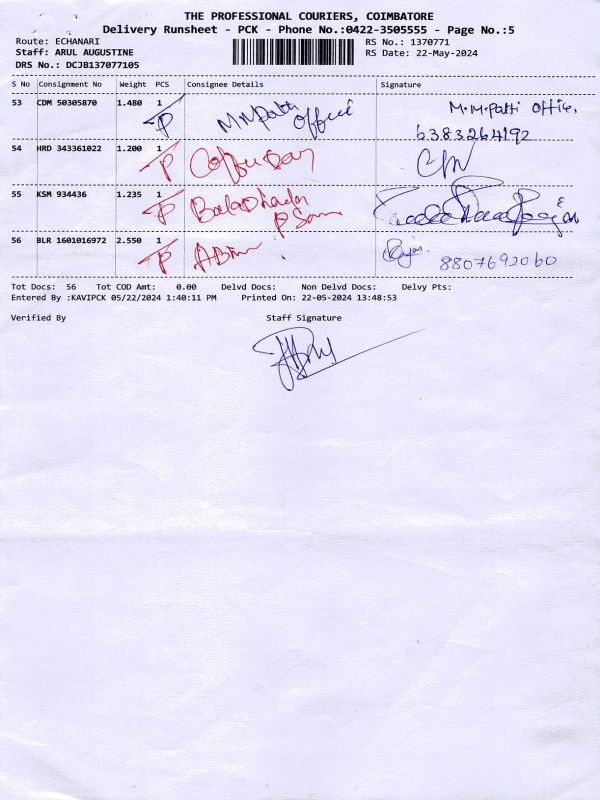 THE PROFESSIONAL COURIERS, COIMBATORE
Delivery Runsheet - PCK - Phone No.:0422-3505555 - Page No.:5
Route: ECHANARI
RS No.: 1370771
Staff: ARUL AUGUSTINE
RS Date: 22-May-2024
DRS No.: DCJB137077105
S No Consignment No Weight PCS Consignee Details Signature
53 CDM 50305870 1.480 1 M.M.Patti Office M.M.Patti Office,
P 6383264192
54 HRD 343361022 1.200 1
P
55 KSM 934436 1.235 1
P
56 BLR 1601016972 2.550 1
P 8807692060
Tot Docs: 56 Tot COD Amt: 0.00 Delvd Docs: Non Delvd Docs: Delvy Pts:
Entered By :KAVIPCK 05/22/2024 1:40:11 PM Printed On: 22-05-2024 13:48:53
Verified By Staff Signature